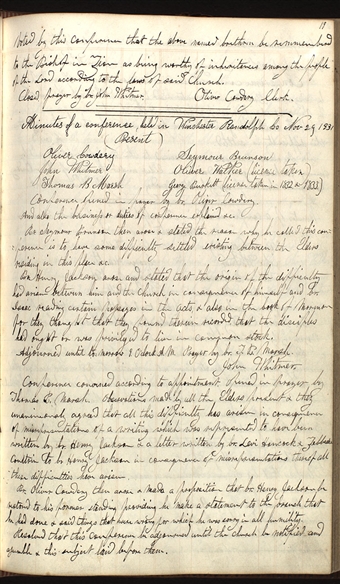 19
Voted by this conference that the above named brethren be recommended
to the Bishop in Zion as being worthy of inheritances among the people
of the Lord according to the laws of said Church.
Closed prayer by br John Whitmer. Oliver Cowdery Clerk.
Minutes of a conference, held in Winchester Randolph Co Nov 29 1831
(Present)
Oliver Cowdery Seymour Brunson
John Whitmer Oliver Walker
Thomas B. Marsh George Burkett
Conference opened in prayer by br Oliver Cowdery.
And also the business or duties of conference explained &c.
Br Seymour Brunson then arose & stated the reason why he called this con
ference is to have some difficulty settled existing between the Elders
residing in this place &c.
Br. Henry Jackson arose and stated that the origin of the difficulty
had arisen between him and the Church in consequence of himself and br
Isaac reading certain passages in the Acts, & also in the book of Mormon
for they thought that they found therein record that the disciples
had ought or was priviledged to live in common stock.
Adjourned until to morrow 8 Oclock A.M. Prayer by br. Th. B. Marsh.
John Whitmer.
Conference convened according to appointment opened in prayer by
Thomas B. Marsh. Observations made by all the Elders present & they
unanimously agreed that all this difficulty has arisen in consequence
of misrepresentations of a writing which was represented to have been
written by br. Henry Jackson & a letter written by br. Levi Hancock & Zebedee
Coultrin to br Henry Jackson in consequence of misrepresentations thereof all
these difficulties have arisen.
br. Oliver Cowdery then arose & made a proposition that br. Henry Jackson be
restored to his former standing providing he make a statement to the branch that
he had done & said things that were wrong for which he was sorry in all humility.
Resolved that this Conference be adjourned until the Church be notified and
assemble & this subject laid before them.